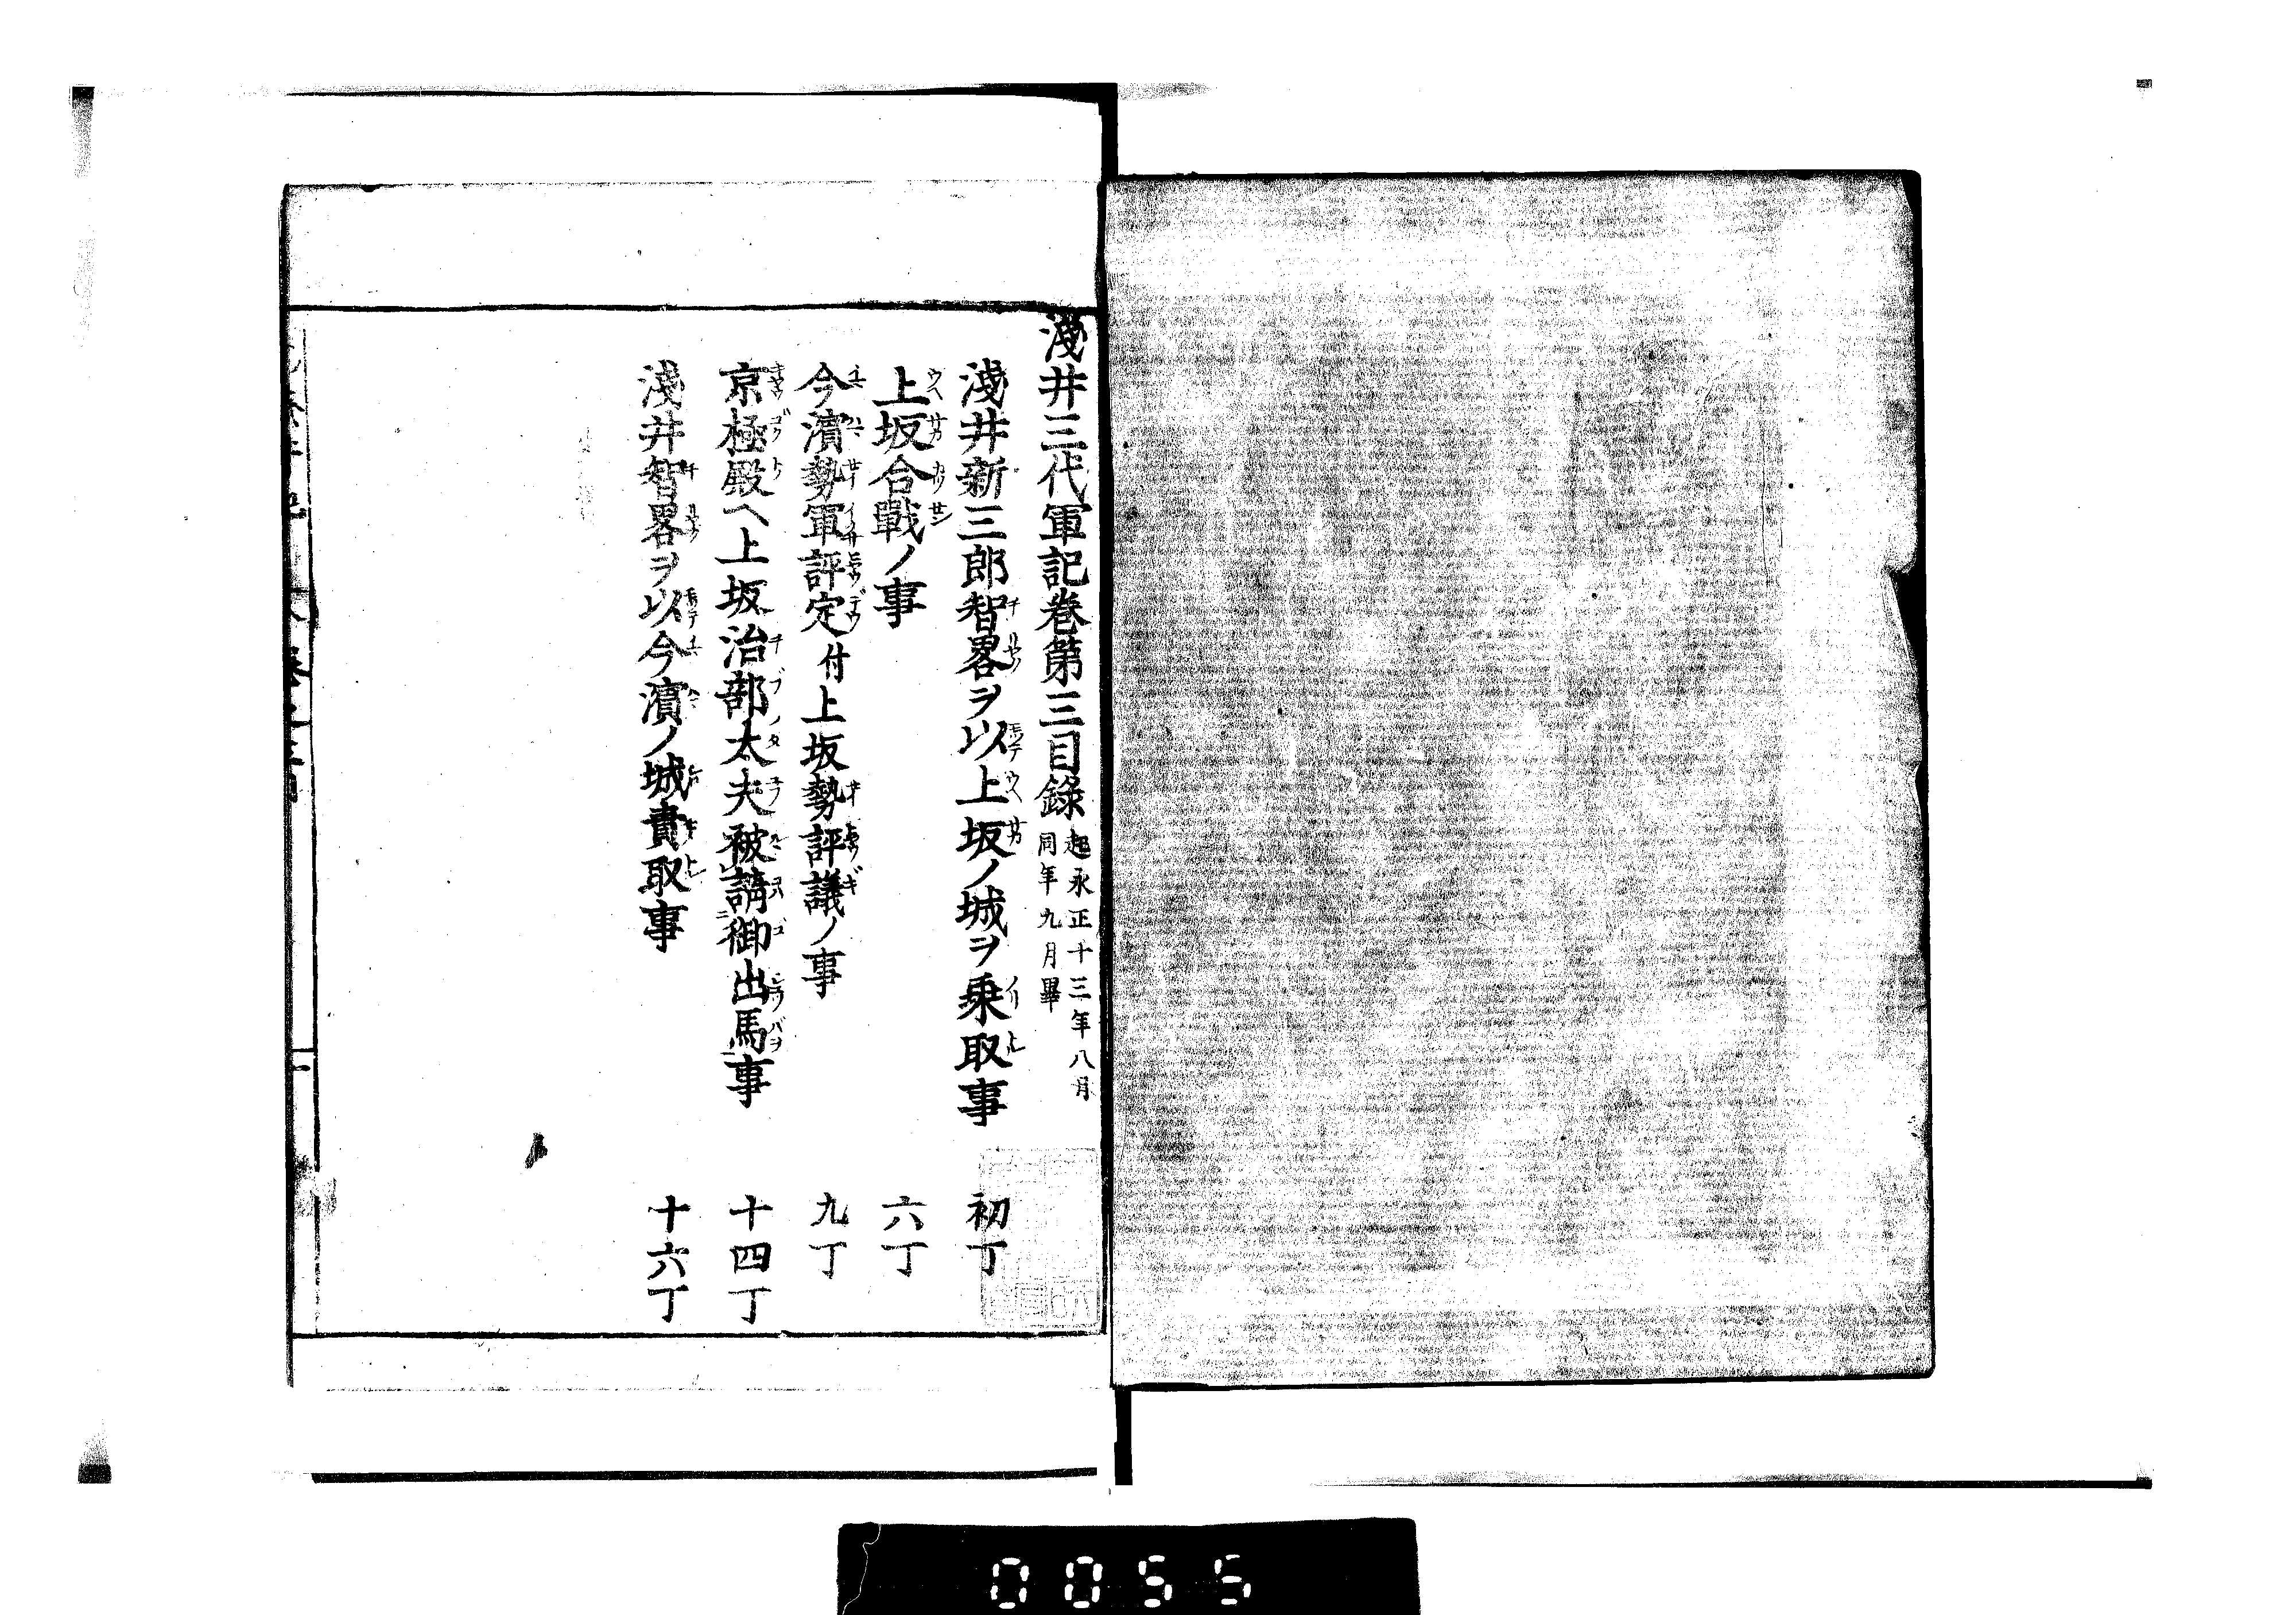 淺井三代軍記卷第三目錄 起永正十三年八月
同年九月畢
淺井新三郎智畧ヲ以上坂ノ城ヲ乗取事 初丁
上坂合戰ノ事 六丁
今濱勢軍評定付上坂勢評議ノ事 九丁
京極殿ヘ上坂治部太夫被請御出馬事 十四丁
淺井智畧ヲ以今濱ノ城責取事 十六丁
0055